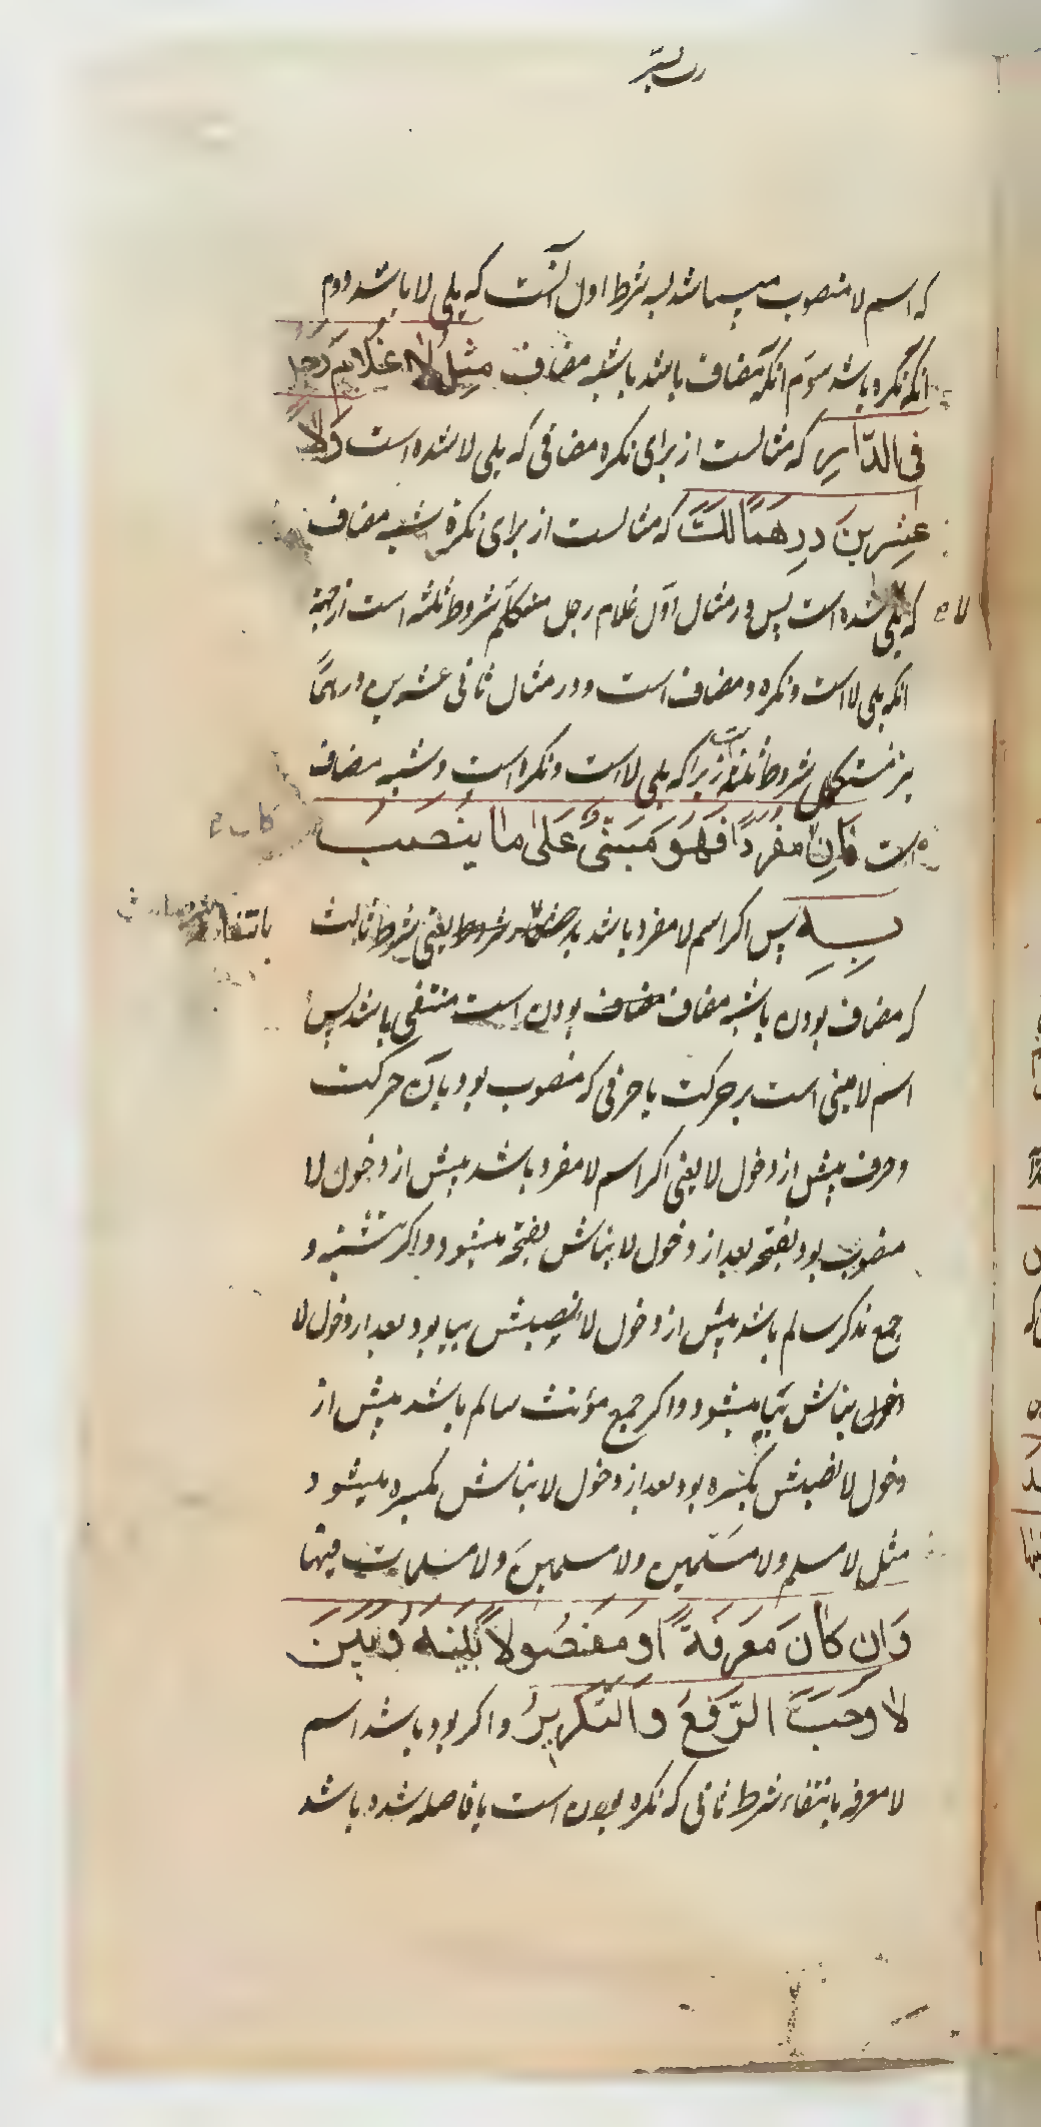 رب یسر
که اسم لا منصوب میباشد بسه شرط اول آنست که یلی لا باشد دوم
آنکه نکره باشد سوم آنکه مضاف باشد یا شبه مضاف مِثل لا غلامَ رَجل
فی الدّار که مثالست از برای نکره مضافی که یلی لا شده است وَلا
عِشرینَ دِرهَمًا لکَ که مثالست از برای نکرهٔ شبه مضاف
که یلی لا شده است پس در مثال اوّل غلام رجل مستکمل شروط ثلثه است از جهة
آنکه یلی لا است و نکره و مضاف است و در مثال ثانی عشرین درهمًا
نیز مستکمل شروط ثلثه است زیرا که یلی لا است و نکره است و شبه مضاف
است فَاِن کانَ مُفرَدًا فَهُوَ مَبنیٌّ عَلیٰ ما یُنصَبُ
بِهِ پس اکر اسم لا مفرد باشد بانتفاء شرط یعنی شرط ثالث
که مضاف بودن یا شبه مضاف بودن است منتفی باشد پس
اسم لا مبنی است بر حرکت یا حرفی که منصوب بود بآن حرکت
و حرف پیش از دخول لا یعنی اکر اسم لا مفرد باشد پیش از دخول لا
منصوب بود بفتحه بعد از دخول لا بنائش بفتحه میشود و اکر تثنیه و
جمع مذکر سالم باشد پیش از دخول لا نصبش بیا بود بعد از دخول لا
دخول بنائش بیا میشود و اکر جمع مؤنث سالم باشد پیش از
دخول لا نصبش بکسره بود بعد از دخول لا بنائش بکسره میشود
مثل لا مسلم ولا مسلمین ولا مسلمینَ ولا مسلمات فیها
وَاِن کانَ مَعرِفَةً اَو مَفصُولاً بَینَهُ وَبَینَ
لا وَجَبَ الرَّفعُ وَالتَّکریرُ و اکر بوده باشد اسم
لا معرفه بانتفاء شرط ثانی که نکره بودن است یا فاصله شده باشد